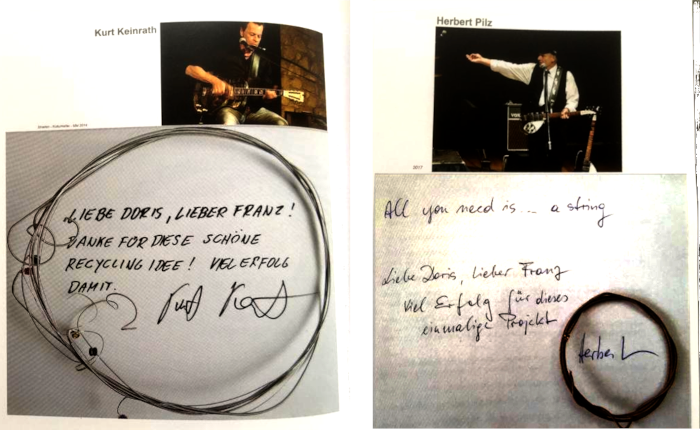 Kurt Keinrath
LIEBE DORIS, LIEBER FRANZ!
DANKE FÜR DIESE SCHÖNE
RECYCLING IDEE! VIEL ERFOLG
DAMIT.
Kurt
Herbert Pilz
2017
All you need is ... a string
Liebe Doris, lieber Franz
viel Erfolg für dieses
einmalige Projekt
Herbert